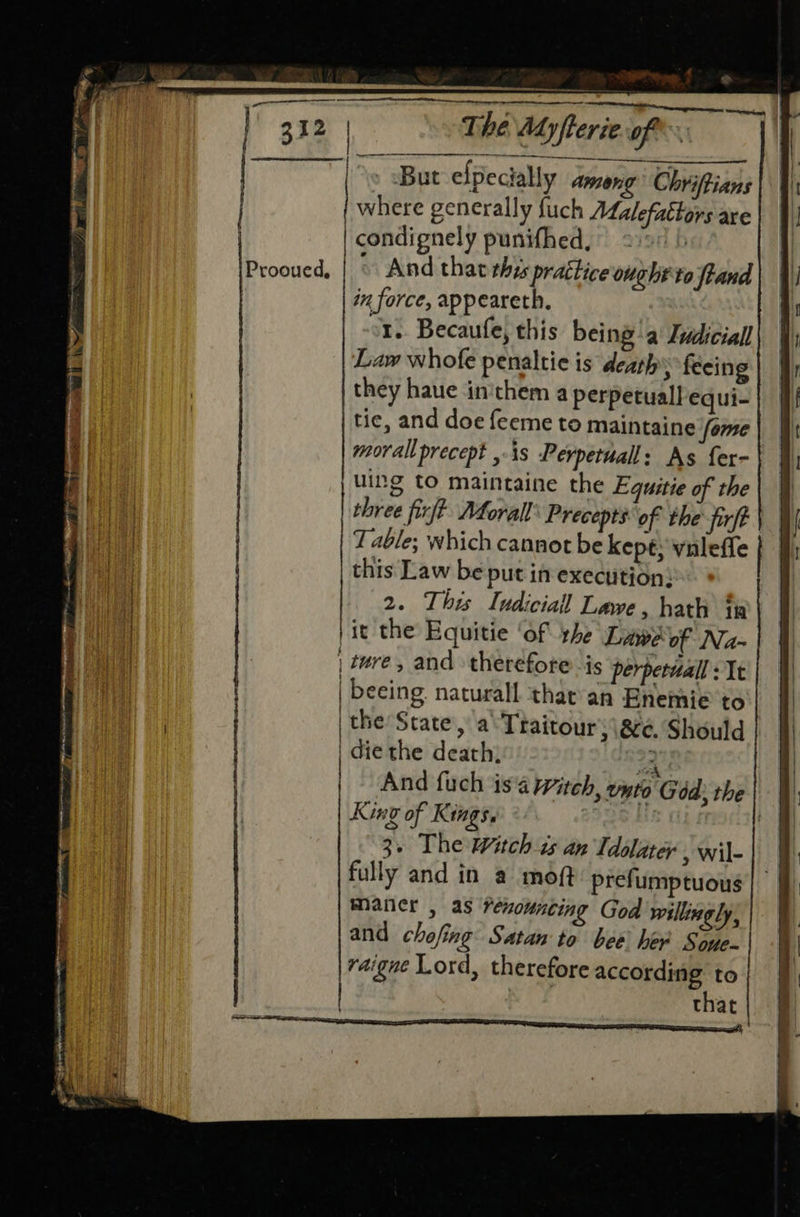 312 The Myſterie of
But eſpecially among Chriſtians
where generally ſuch Malefactors are
condignely puniſhed,
Prooued, And that this practice ought to ſtand
in force, appeareth.
1. Becauſe, this being a Iudiciall
Law whoſe penaltie is death, ſeeing
they haue in them a perpetuall equi-
tie, and doe ſeeme to maintaine ſome
morall precept, is Perpetuall: As ſer-
uing to maintaine the Equitie of the
three firſt Morall Precepts of the firſt
Table; which cannot be kept, vnleſſe
this Law be put in execution;
2. This Iudiciall Lawe, hath in
it the Equitie of the Lawe of Na-
ture, and therefore is perpetuall: It
beeing naturall that an Enemie to
the State, a Traitour, &c. Should
die the death,
And ſuch is a Witch, vnto God, the
King of Kings.
3. The Witch is an Idolater, wil-
fully and in a moſt preſumptuous
maner, as renouncing God willingly,
and choſing Satan to bee her Soue-
raigne Lord, therefore according to
that